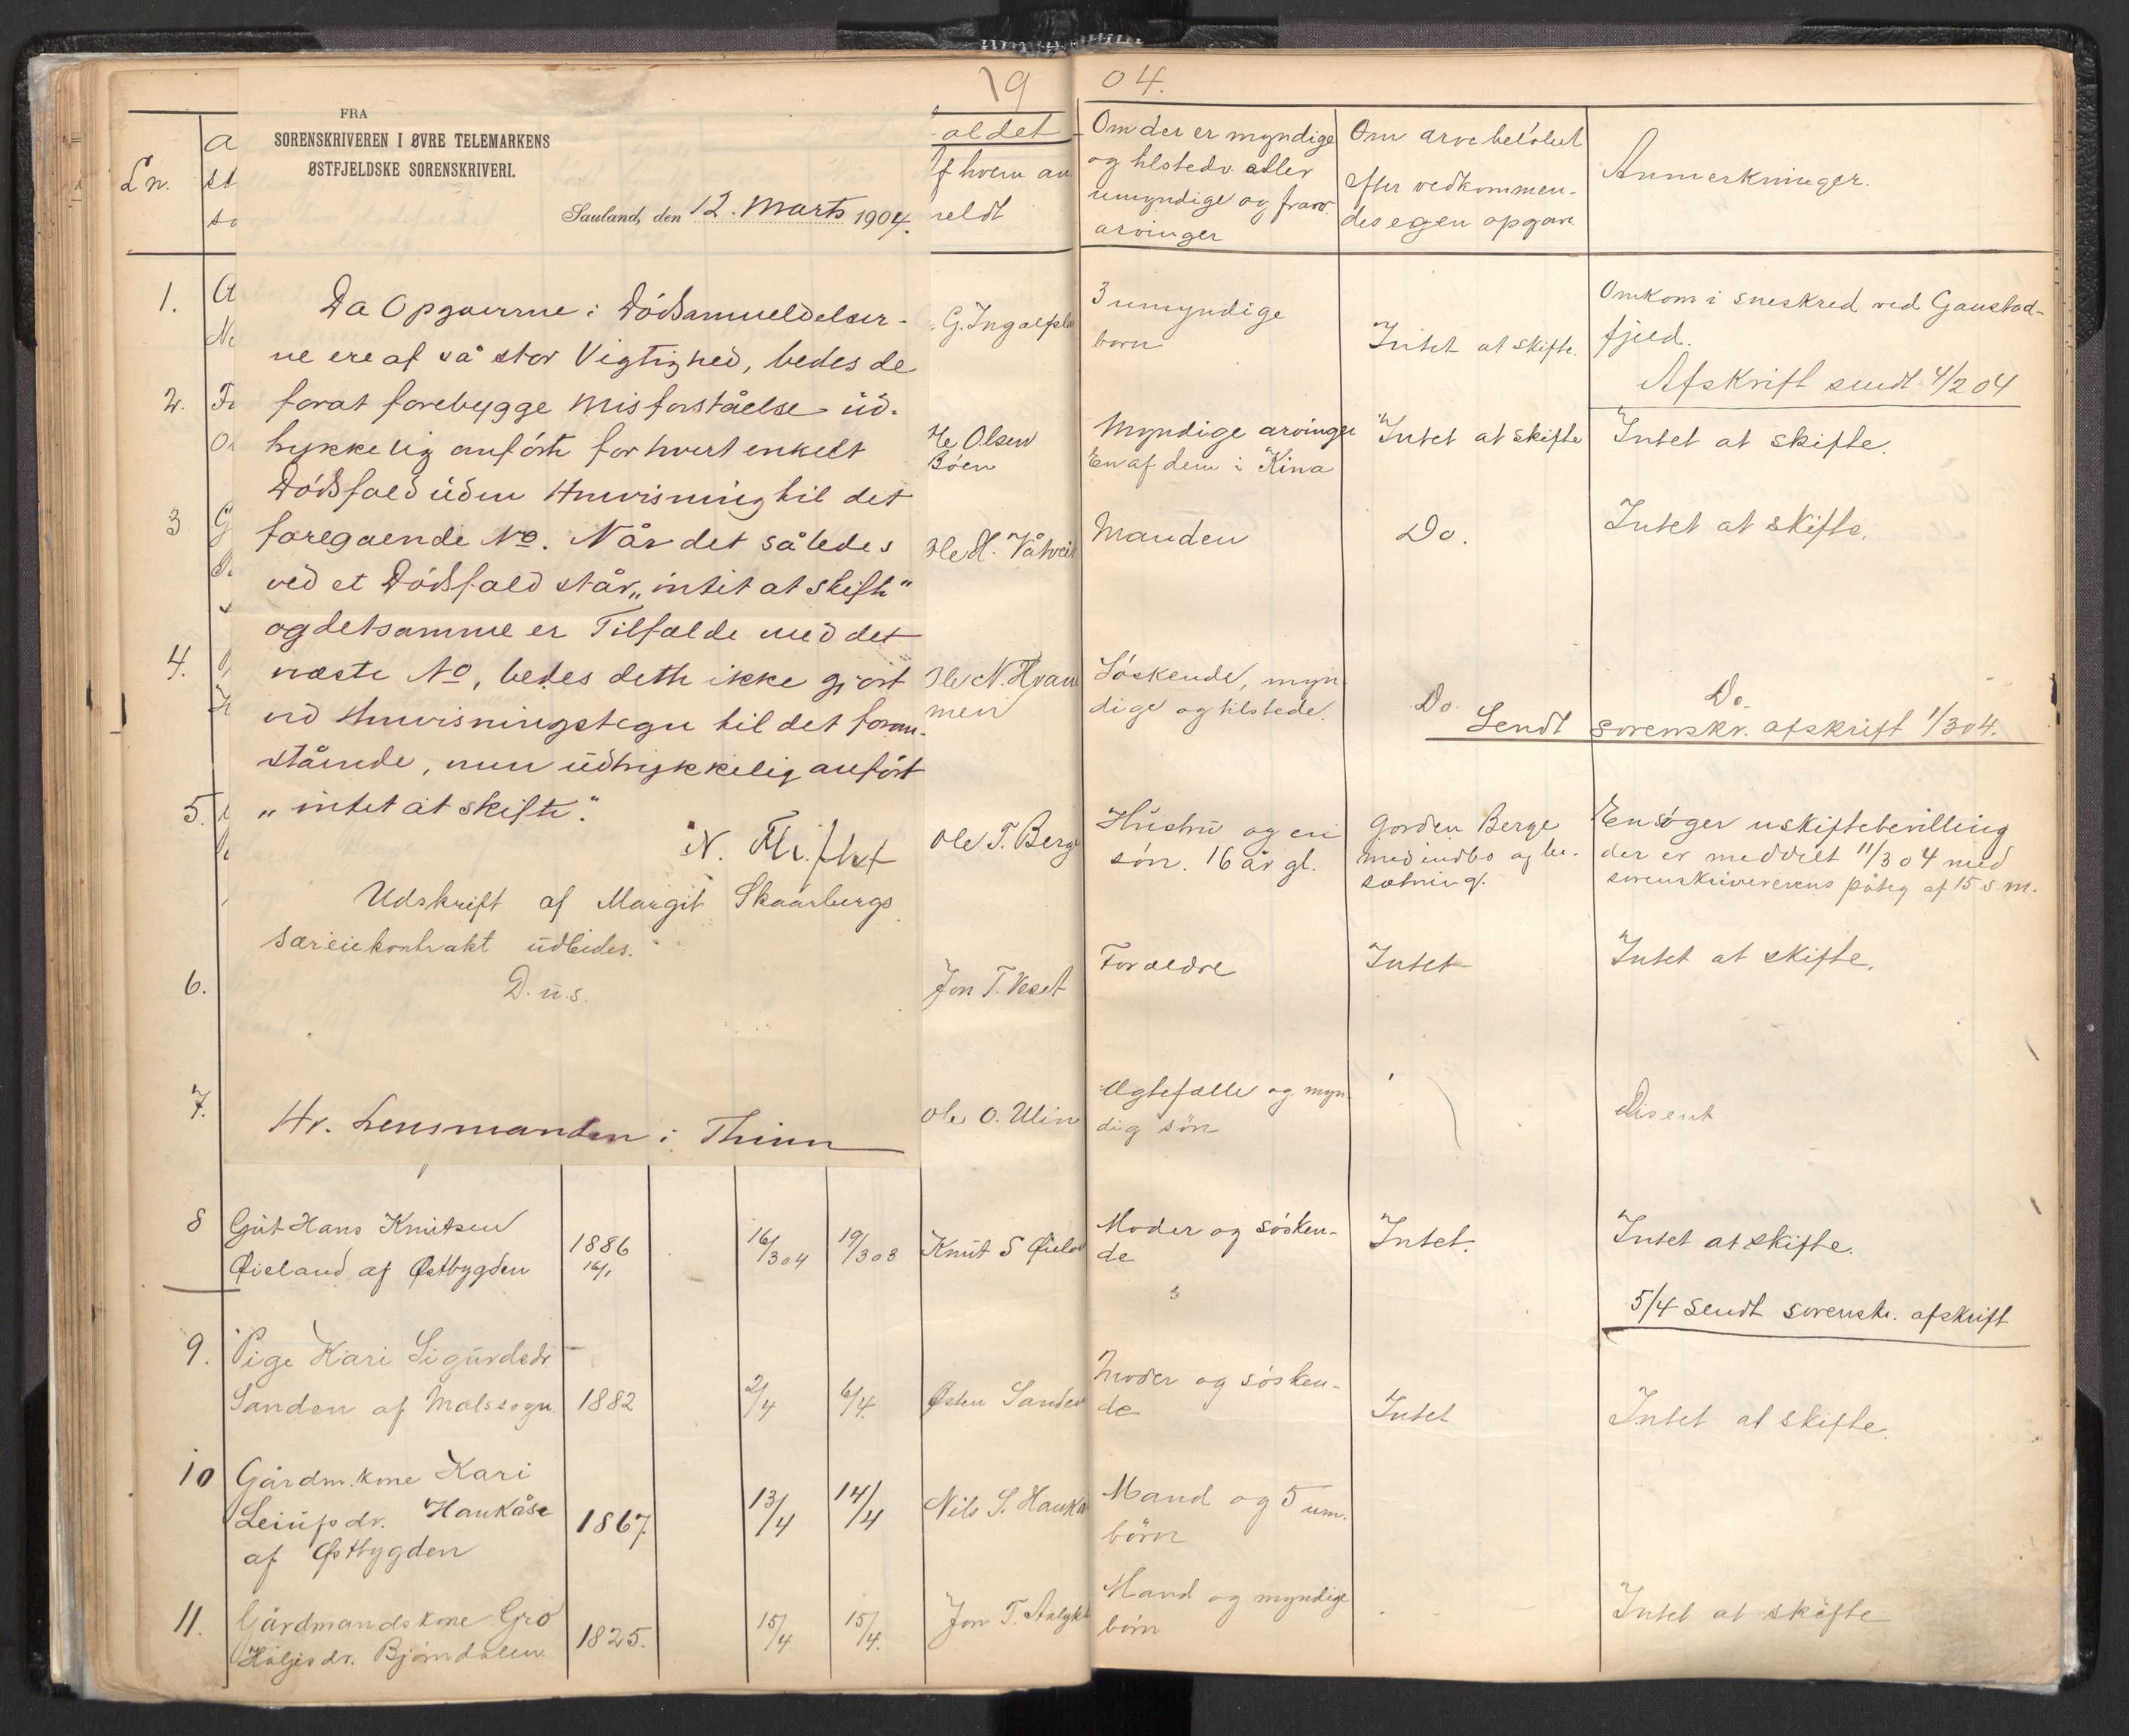 19 04.
Ln.
a
st
so
FRA
SORENSKRIVEREN I ØVRE TELEMARKENS
ØSTFJELDSKE SORENSKRIVERI.
Sauland, den 12. Marts 1904.
Da Opgaverne i Dödsanmeldelser-
ne ere af så stor Vigtighed, bedes de
forat forebygge Misforståelse ud-
trykkelig anförte for hvert enkelt
Dödsfald uden Henvisning til det
foregaaende No. Når det således
ved et Dödsfald står „intet at skifte"
og detsamme er Tilfælde med det
næste No, bedes dette ikke gjort
ved Henvisningstegn til det foran-
stående, men udtrykkelig anfört
„intet at skifte".
N.
Udskrift af Margit Skaarbergs
særeiekontrakt udbedes.
D. u. s.
Hr. Lensmanden i Thinn
aldet
f hvem an
meldt
Om der er myndige
og tilstedv. eller
umyndige og fravr.
arvinger
Om arvebelöbet
efter vedkommen-
des egen opgave
Anmerkninger.
1.
G. Ingolfsla
3 umyndige
born
Intet at skifte.
Omkom i sneskred ved Gaustad-
fjeld.
Afskrift sendt 4/2 04
2.
Ole Olsen
Böen
Myndige arvinger
En af dem i Kina
Intet at skifte
Intet at skifte.
3
Ole H.
Manden
Do.
Intet at skifte.
4.
Ole N. Hvam
men
Söskende, myn
dige og tilstede.
Do.
Do.
Sendt sorenskr. afskrift 1/3 04.
5.
Ole T. Berge
Hustru og en
sön. 16 år gl.
Gorden Berge
med indbo og be-
sætning.
Ensöger uskiftebevilling
der er meddelt 11/3 04 med
sorenskriverens påteg af 15 s. m.
6.
Jon T. Veset
Forældre
Intet
Intet at skifte.
7.
Ole O. Ulin
Ægtefælle og myn
dig sön
8 Gut Hans Knutsen
Øieland af Østbygden
1886
16/1
16/3 04
19/3 03
Knut S Øielan
Moder og sösken-
de
Intet.
Intet at skifte.
5/4 Sendt sorenskr. afskrift
9. Pige Kari Sigurdsdr.
Sanden af Mælssogn
1882
2/4
6/4.
Østen Sanden
Moder og sösken-
de
Intet
Intet at skifte.
10 Gårdm. kone Kari
Leiufsdr. Haukåse
af Østbygden
1867.
13/4
14/4
Nils S. Haukå
Mand og 5 um.
börn
11. Gårdmandskone Gro
Høljesdr. Bjørndalen
1825.
15/4
15/4.
Jon T.
Mand og myndige
börn
Intet at skifte